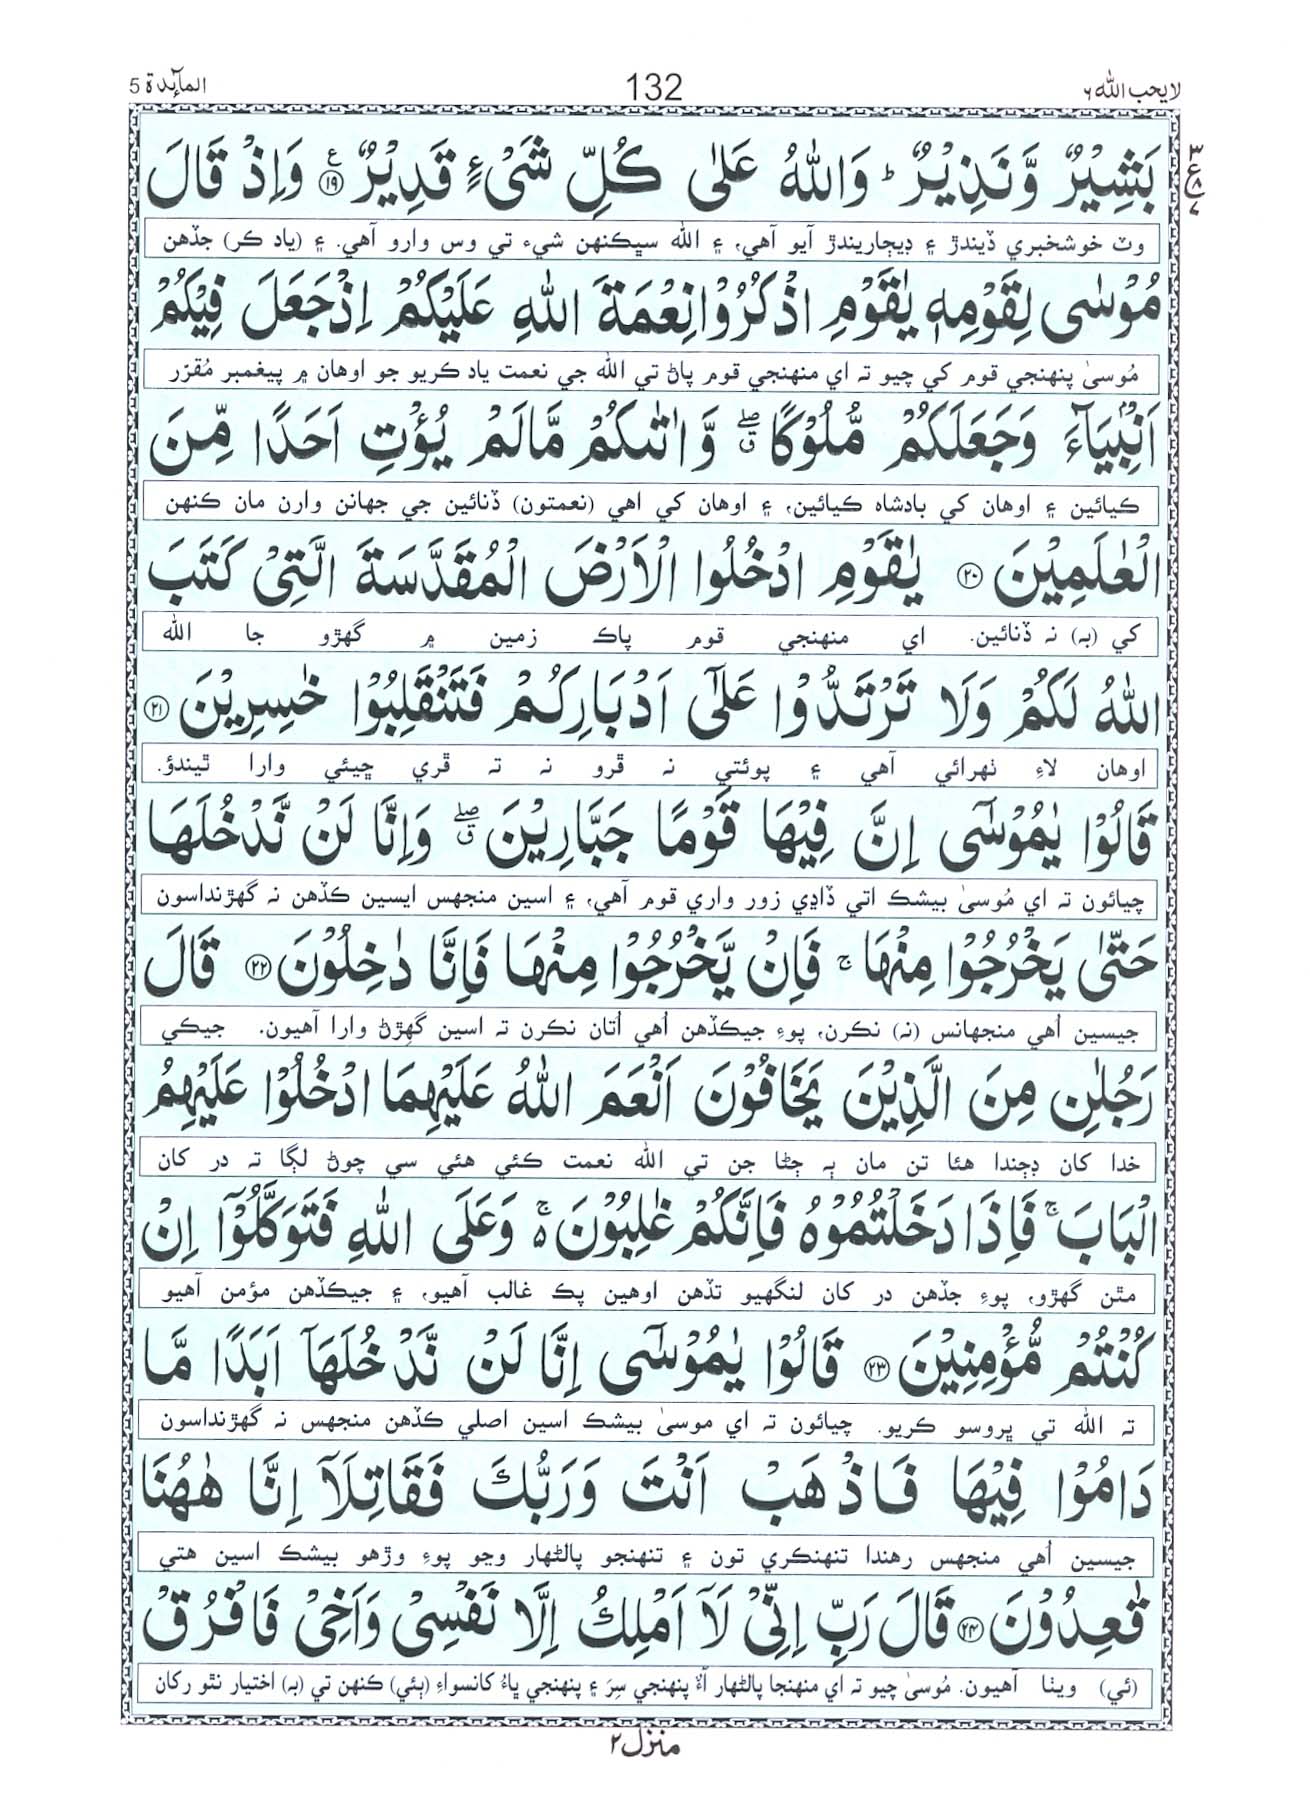 لايحب الله ٦
132
المآئدة 5
٣ ع ٨ ٧
بَشِيْرٌ وَّنَذِيْرٌ ؕ وَاللّٰهُ عَلٰى كُلِّ شَىْءٍ قَدِيْرٌ ﴿١٩﴾ ع وَاِذْ قَالَ
وٽ خوشخبري ڏيندڙ ۽ ڊيڄاريندڙ آيو آهي، ۽ الله سڀڪنهن شيءِ تي وس وارو آهي. ۽ (ياد ڪر) جڏهن
مُوْسٰى لِقَوْمِهٖ يٰقَوْمِ اذْكُرُوْا نِعْمَةَ اللّٰهِ عَلَيْكُمْ اِذْ جَعَلَ فِيْكُمْ
مُوسىٰ پنهنجي قوم کي چيو تہ اي منهنجي قوم پاڻ تي الله جي نعمت ياد ڪريو جو اوهان ۾ پيغمبر مُقرّر
اَنْۢبِيَآءَ وَجَعَلَكُمْ مُّلُوْكًا ۖق وَّاٰتٰىكُمْ مَّا لَمْ يُؤْتِ اَحَدًا مِّنَ
ڪيائين ۽ اوهان کي بادشاه ڪيائين، ۽ اوهان کي اهي (نعمتون) ڏنائين جي جهانن وارن مان ڪنهن
الْعٰلَمِيْنَ ﴿٢٠﴾ يٰقَوْمِ ادْخُلُوا الْاَرْضَ الْمُقَدَّسَةَ الَّتِىْ كَتَبَ
کي (بہ) نہ ڏنائين. اي منهنجي قوم پاڪ زمين ۾ گهڙو جا الله
اللّٰهُ لَكُمْ وَلَا تَرْتَدُّوْا عَلٰٓى اَدْبَارِكُمْ فَتَنْقَلِبُوْا خٰسِرِيْنَ ﴿٢١﴾
اوهان لاءِ ٺهرائي آهي ۽ پوئتي نہ ڦرو نہ تہ ڦري ڇيئي وارا ٿيندؤ.
قَالُوْا يٰمُوْسٰٓى اِنَّ فِيْهَا قَوْمًا جَبَّارِيْنَ ۖق وَاِنَّا لَنْ نَّدْخُلَهَا
چيائون تہ اي مُوسىٰ بيشڪ اتي ڏاڍي زور واري قوم آهي، ۽ اسين منجهس ايسين ڪڏهن نہ گهڙنداسون
حَتّٰى يَخْرُجُوْا مِنْهَا ۚ فَاِنْ يَّخْرُجُوْا مِنْهَا فَاِنَّا دٰخِلُوْنَ ﴿٢٢﴾ قَالَ
جيسين اُهي منجهانئس (نہ) نڪرن، پوءِ جيڪڏهن اُهي اُتان نڪرن تہ اسين گهِڙڻ وارا آهيون. جيڪي
رَجُلٰنِ مِنَ الَّذِيْنَ يَخَافُوْنَ اَنْعَمَ اللّٰهُ عَلَيْهِمَا ادْخُلُوْا عَلَيْهِمُ
خدا کان ڊڄندا هئا تن مان ٻہ ڄڻا جن تي الله نعمت ڪئي هئي سي چوڻ لڳا تہ در کان
الْبَابَ ۚ فَاِذَا دَخَلْتُمُوْهُ فَاِنَّكُمْ غٰلِبُوْنَ ۚ ۵ وَعَلَى اللّٰهِ فَتَوَكَّلُوْٓا اِنْ
مٿن گهڙو، پوءِ جڏهن در کان لنگهيو تڏهن اوهين پڪ غالب آهيو، ۽ جيڪڏهن مؤمن آهيو
كُنْتُمْ مُّؤْمِنِيْنَ ﴿٢٣﴾ قَالُوْا يٰمُوْسٰٓى اِنَّا لَنْ نَّدْخُلَهَآ اَبَدًا مَّا
تہ الله تي ڀروسو ڪريو. چيائون تہ اي موسىٰ بيشڪ اسين اصلي ڪڏهن منجهس نہ گهڙنداسون
دَامُوْا فِيْهَا فَاذْهَبْ اَنْتَ وَرَبُّكَ فَقَاتِلَآ اِنَّا هٰهُنَا
جيسين اُهي منجهس رهندا تنهنڪري تون ۽ تنهنجو پالڻهار وڃو پوءِ وڙهو بيشڪ اسين هتي
قٰعِدُوْنَ ﴿٢٤﴾ قَالَ رَبِّ اِنِّىْ لَآ اَمْلِكُ اِلَّا نَفْسِىْ وَاَخِىْ فَافْرُقْ
(ئي) ويٺا آهيون. مُوسىٰ چيو تہ اي منهنجا پالڻهار آءٌ پنهنجي سِرَ ۽ پنهنجي ڀاءُ کانسواءِ (ٻئي) ڪنهن تي (بہ) اختيار نٿو رکان
منزل ٢